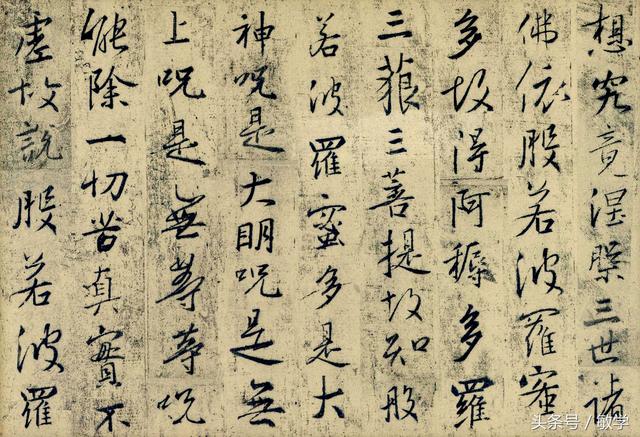 想究竟涅槃三世諸
佛依般若波羅蜜
多故得阿耨多羅
三藐三菩提故知般
若波羅蜜多是大
神咒是大明咒是無
上咒是無等等咒
能除一切苦真實不
虛故說般若波羅
头条号/敏学